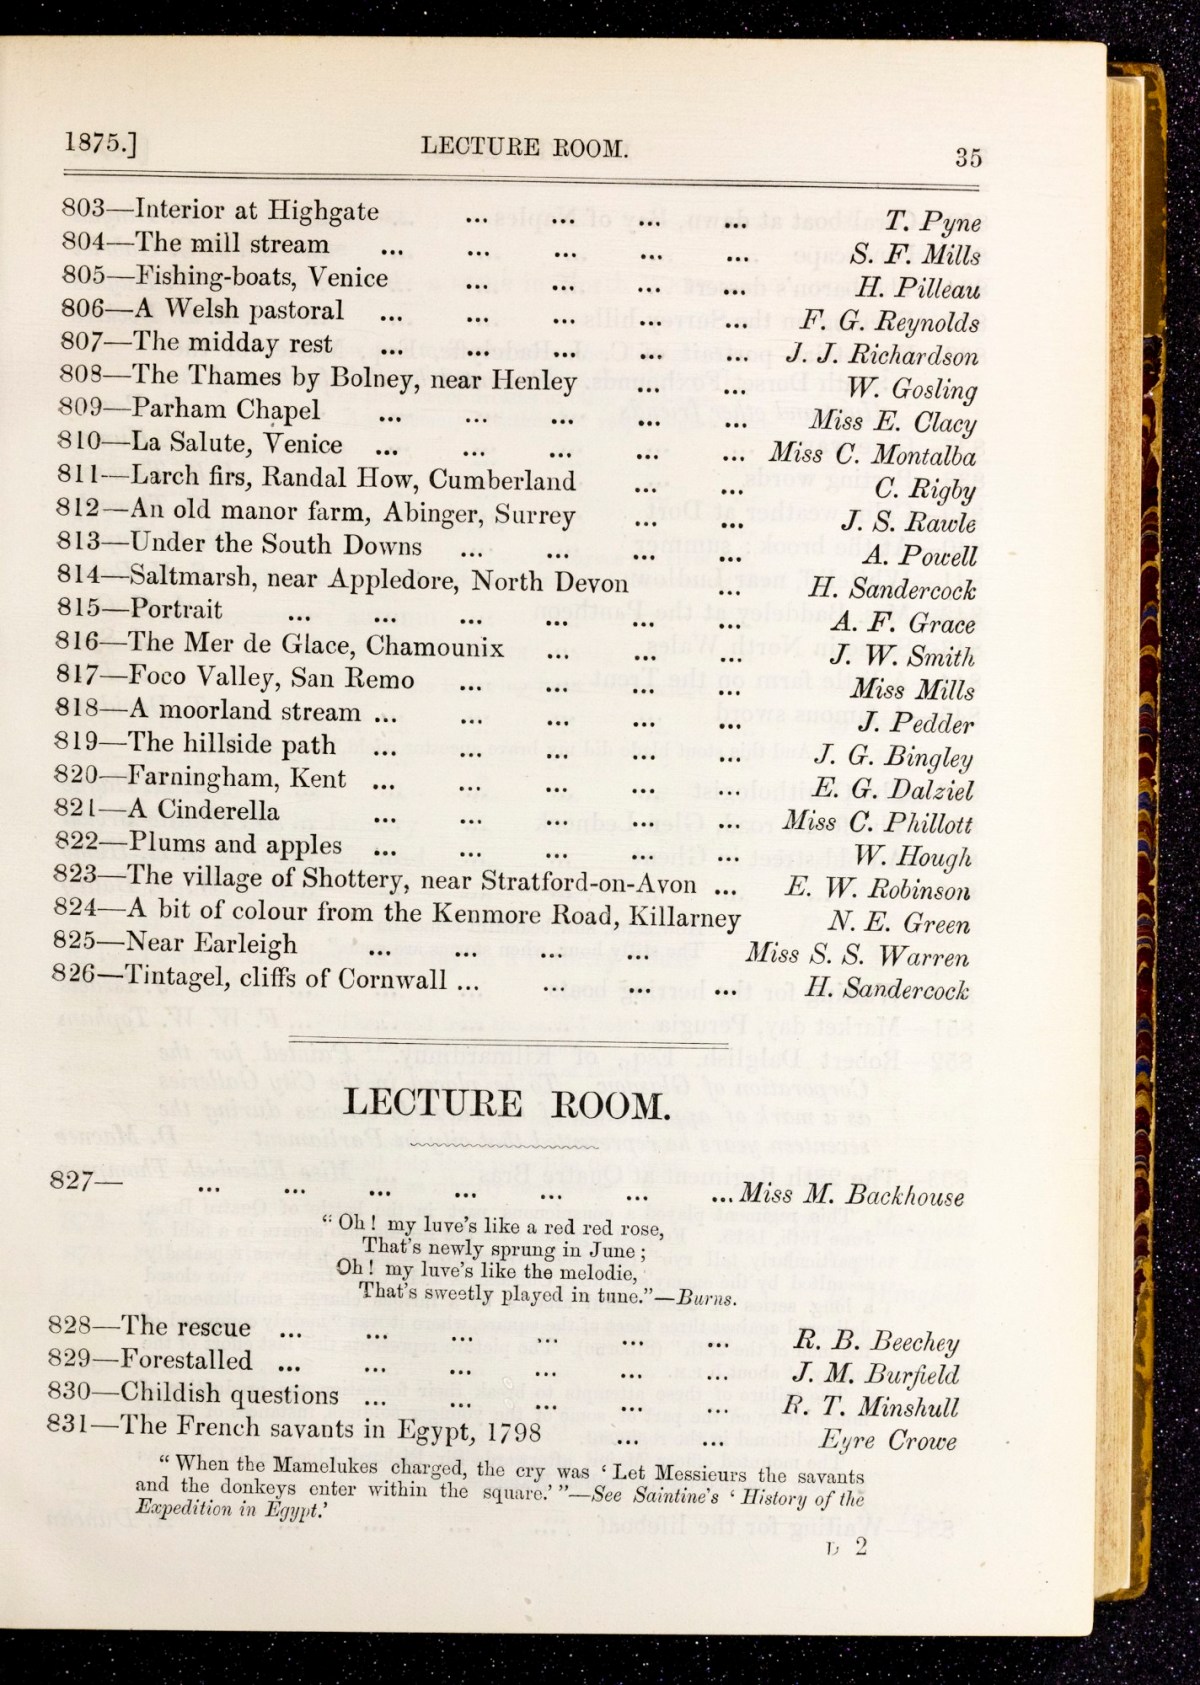 1875.] LECTURE ROOM. 35
803—Interior at Highgate ... ... ... ... T. Pyne
804—The mill stream ... ... ... ... ... S. F. Mills
805—Fishing-boats, Venice ... ... ... ... H. Pilleau
806—A Welsh pastoral ... ... ... ... ... F. G. Reynolds
807—The midday rest ... ... ... ... ... J. J. Richardson
808—The Thames by Bolney, near Henley ... ... W. Gosling
809—Parham Chapel ... ... ... ... ... Miss E. Clacy
810—La Salute, Venice ... ... ... ... ... Miss C. Montalba
811—Larch firs, Randal How, Cumberland ... ... C. Rigby
812—An old manor farm, Abinger, Surrey ... ... J. S. Rawle
813—Under the South Downs ... ... ... ... A. Powell
814—Saltmarsh, near Appledore, North Devon ... H. Sandercock
815—Portrait ... ... ... ... ... ... A. F. Grace
816—The Mer de Glace, Chamounix ... ... ... J. W. Smith
817—Foco Valley, San Remo ... ... ... ... Miss Mills
818—A moorland stream ... ... ... ... ... J. Pedder
819—The hillside path ... ... ... ... ... J. G. Bingley
820—Farningham, Kent ... ... ... ... ... E. G. Dalziel
821—A Cinderella ... ... ... ... ... Miss C. Phillott
822—Plums and apples ... ... ... ... ... W. Hough
823—The village of Shottery, near Stratford-on-Avon ... E. W. Robinson
824—A bit of colour from the Kenmore Road, Killarney N. E. Green
825—Near Earleigh ... ... ... ... Miss S. S. Warren
826—Tintagel, cliffs of Cornwall ... ... ... ... H. Sandercock
LECTURE ROOM.
827— ... ... ... ... ... ... ... Miss M. Backhouse
“ Oh ! my luve’s like a red red rose,
That’s newly sprung in June ;
Oh ! my luve’s like the melodie,
That’s sweetly played in tune.”—Burns.
828—The rescue ... ... ... ... ... ... R. B. Beechey
829—Forestalled ... ... ... ... ... ... J. M. Burfield
830—Childish questions ... ... ... ... ... R. T. Minshull
831—The French savants in Egypt, 1798 ... ... Eyre Crowe
“ When the Mamelukes charged, the cry was ‘ Let Messieurs the savants
and the donkeys enter within the square.’ ”—See Saintine’s ‘ History of the
Expedition in Egypt.’
D 2